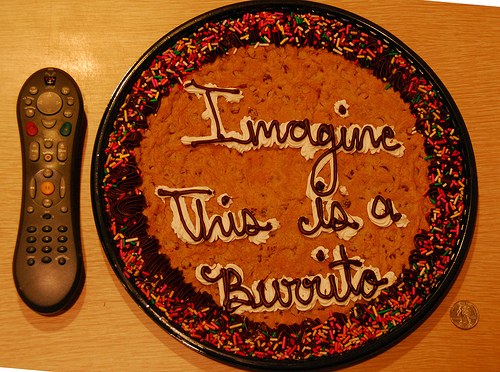 Imagine
This is a
Burrito